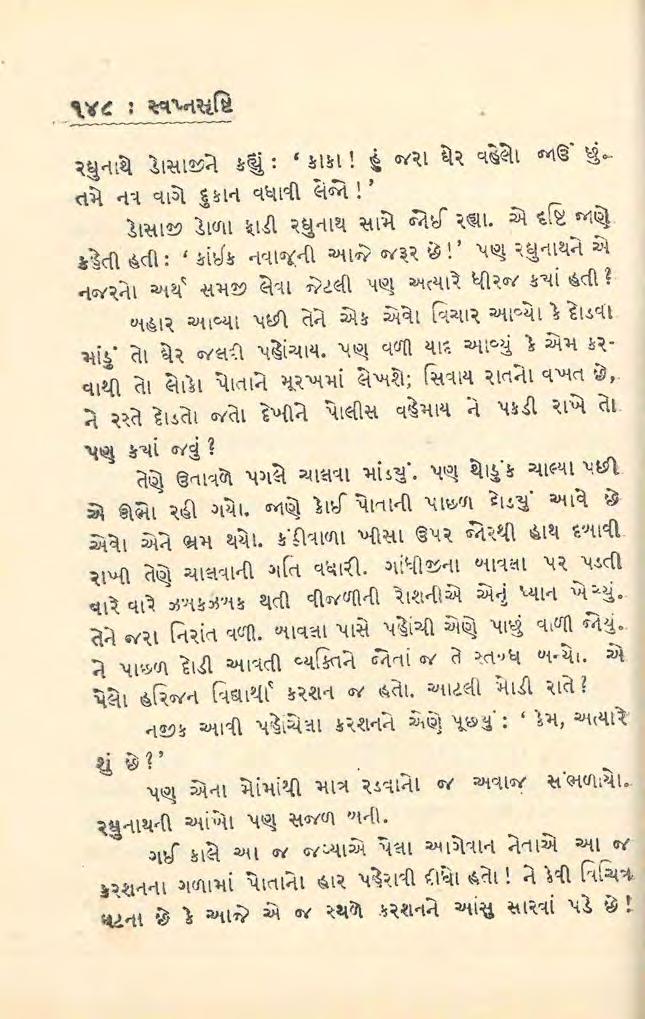 ૧૪૮ : સ્વપ્નસૃષ્ટિ
રઘુનાથે ડોસાજીને કહ્યું : ‘ કાકા ! હું જરા ઘેર વહેલો જાઉં છું.
તમે નવ વાગે દુકાન વધાવી લેજો ! ’
ડોસાજી ડોળા ફાડી રઘુનાથ સામે જોઈ રહ્યા. એ દૃષ્ટિ જાણે
કહેતી હતી : ‘ કાંઈક નવાજૂની આજે જરૂર છે !’ પણ રઘુનાથને એ
નજરનો અર્થ સમજી લેવા જેટલી પણ અત્યારે ધીરજ કયાં હતી ?
બહાર આવ્યા પછી તેને એક એવો વિચાર આવ્યો કે દોડવા
માંડું તો ઘેર જલદી પહોંચાય. પણ વળી યાદ આવ્યું કે એમ કર-
વાથી તો લોકો પોતાને મૂરખમાં લેખશે; સિવાય રાતનો વખત છે,
ને રસ્તે દોડતો જતો દેખીને પોલીસ વહેમાય ને પકડી રાખે તો
પણ કયાં જવું ?
તેણે ઉતાવળે પગલે ચાલવા માંડયું. પણ થોડુંક ચાલ્યા પછી
એ ઊભો રહી ગયો. જાણે કોઈ પોતાની પાછળ દોડયું આવે છે
એવો એને ભ્રમ થયો. કંઠીવાળા ખીસા ઉપર જોરથી હાથ દબાવી
રાખી તેણે ચાલવાની ગતિ વધારી. ગાંધીજીના બાવલા પર પડતી
વારે વારે ઝબકઝબક થતી વીજળીની રોશનીએ એનું ધ્યાન ખેંચ્યું.
તેને જરા નિરાંત વળી. બાવલા પાસે પહોંચી એણે પાછું વાળી જોયું.
ને પાછળ દોડી આવતી વ્યક્તિને જોતાં જ તે સ્તબ્ધ બન્યો. એ
પેલો હરિજન વિદ્યાર્થી કરશન જ હતો. આટલી મોડી રાતે ?
નજીક આવી પહોંચેલા કરશનને એણે પૂછયું : ‘ કેમ, અત્યારે
શું છે ?’
પણ એના મોંમાંથી માત્ર રડવાનો જ અવાજ સંભળાયો.
રઘુનાથની આંખો પણ સજળ બની.
ગઈ કાલે આ જ જગ્યાએ પેલા આગેવાન નેતાએ આ જ
કરશનના ગળામાં પોતાનો હાર પહેરાવી દીધો હતો ! ને કેવી વિચિત્ર
ઘટના છે કે આજે એ જ સ્થળે કરશનને આંસુ સારવાં પડે છે !